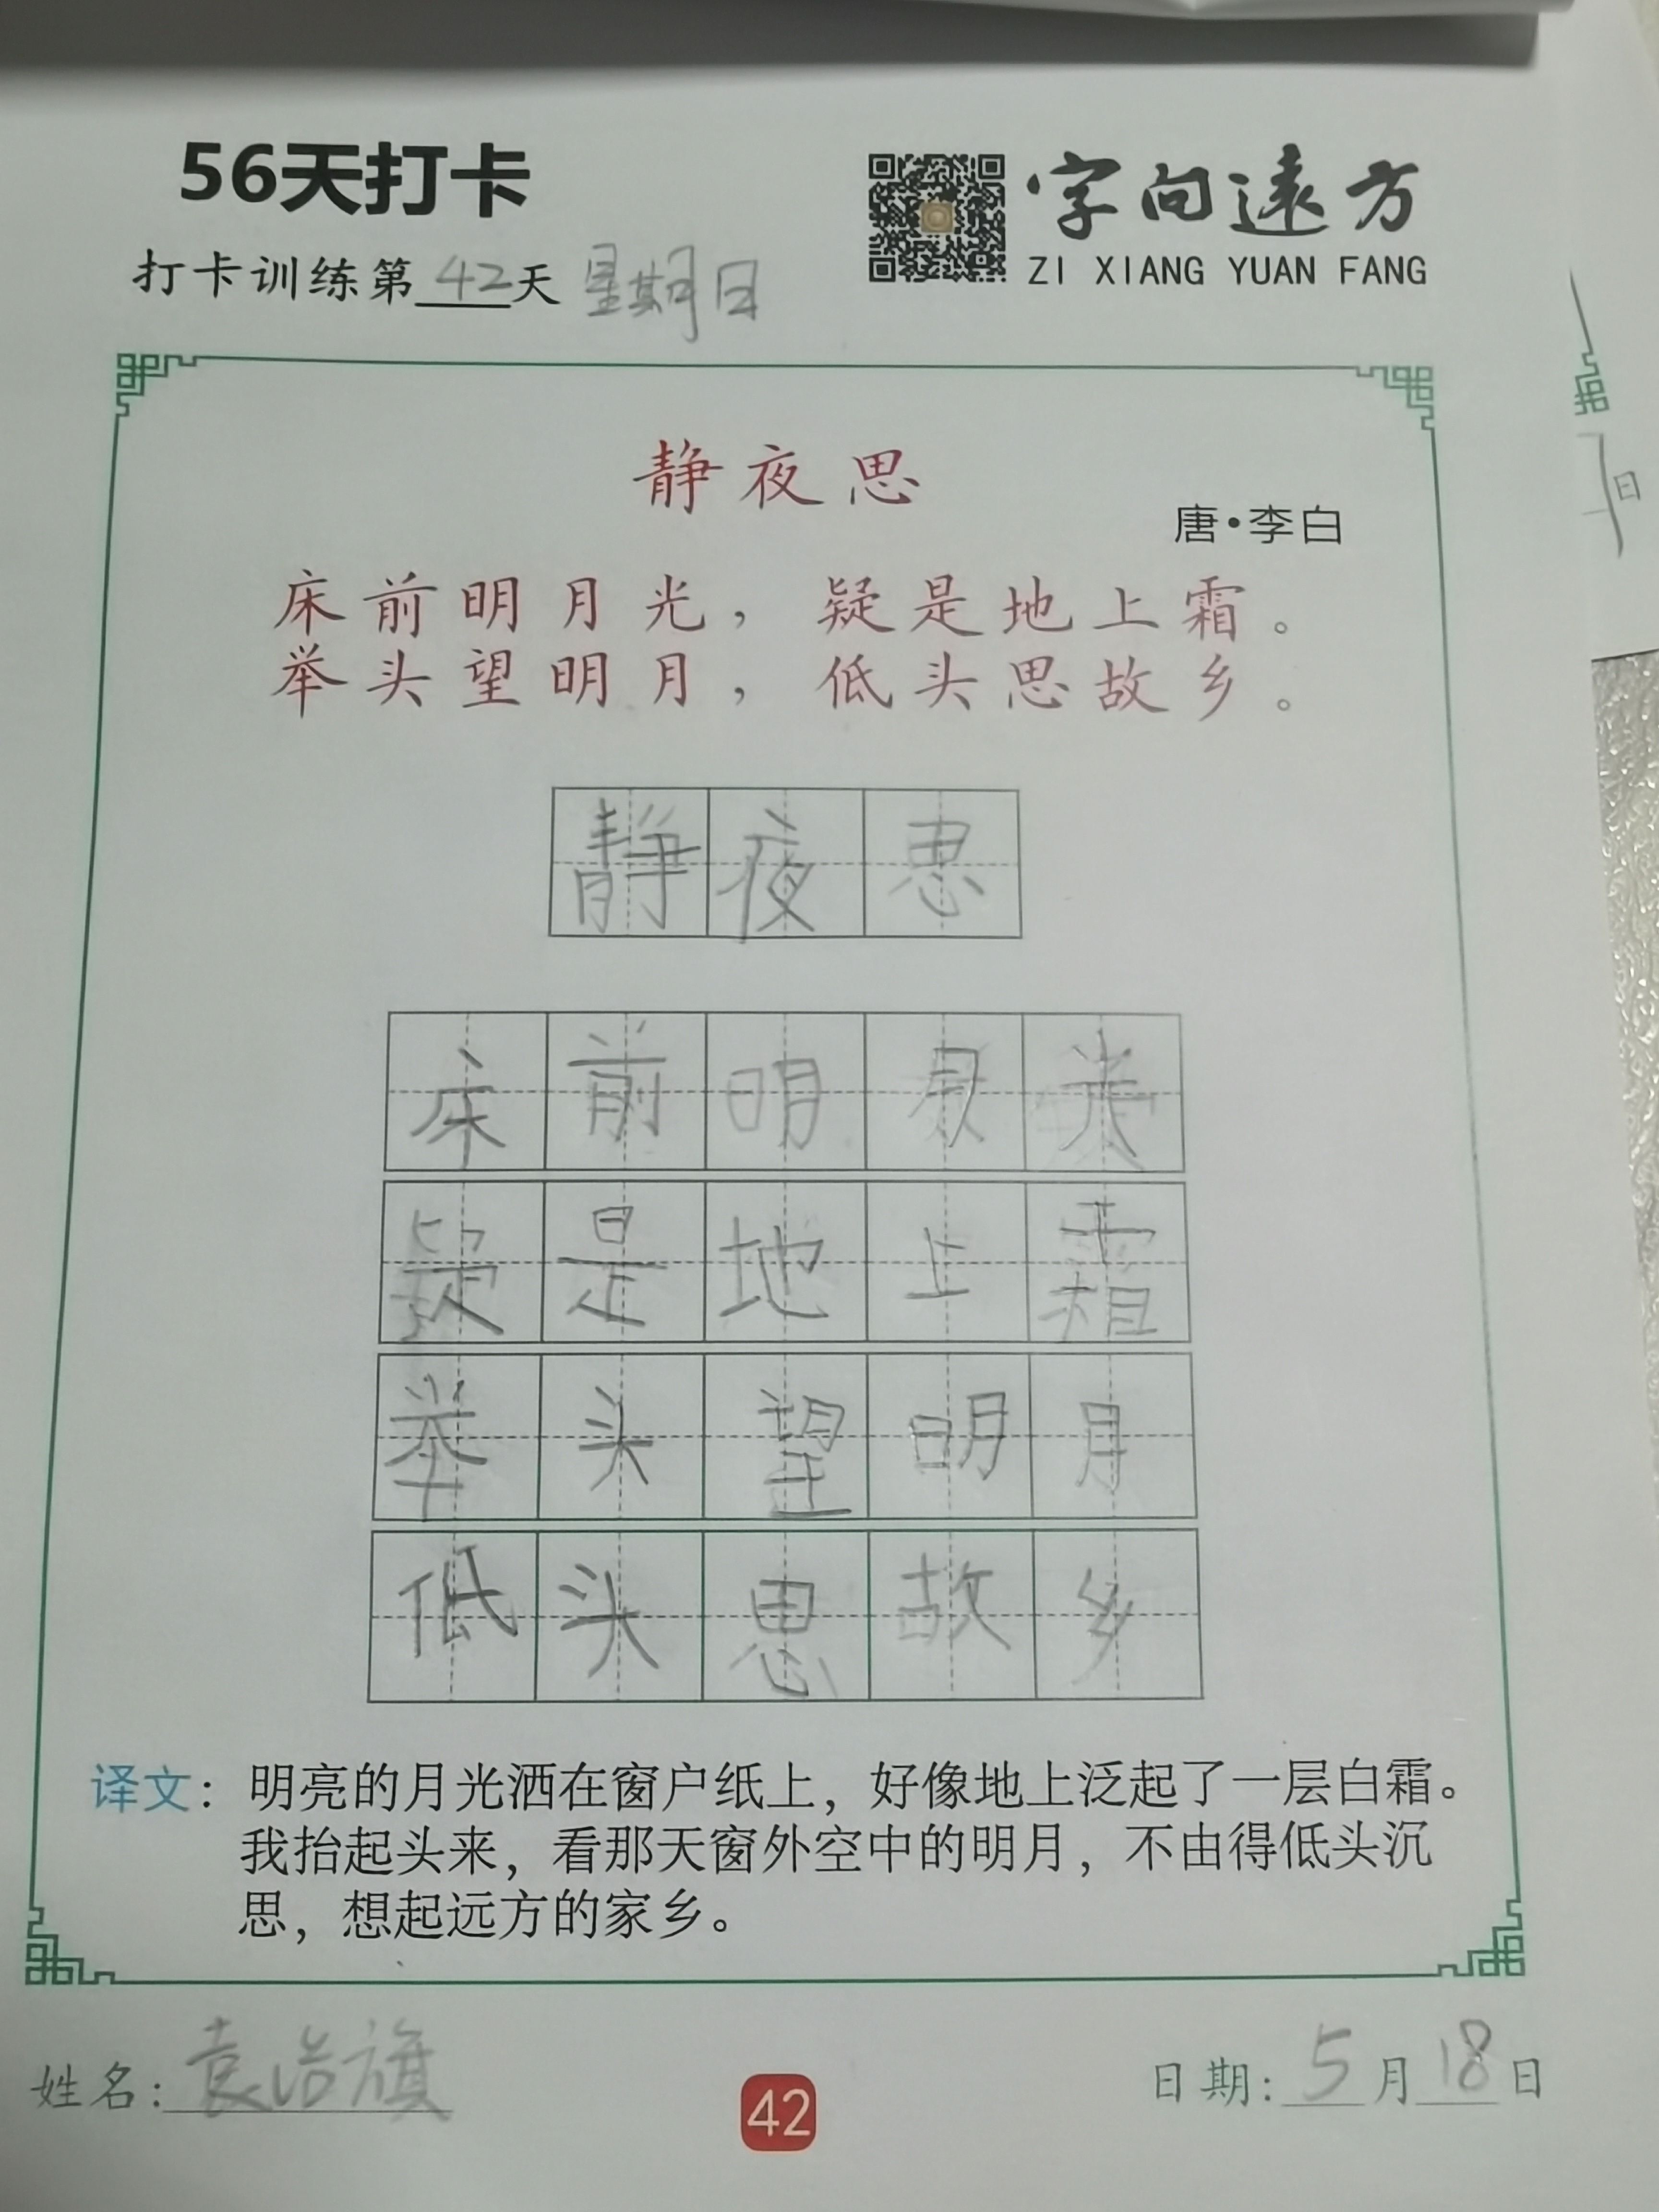 56天打卡
字向远方
ZI XIANG YUAN FANG
打卡训练第42天 星期日
静夜思
唐·李白
床前明月光，疑是地上霜。
举头望明月，低头思故乡。
静夜思
床前明月光
疑是地上霜
举头望明月
低头思故乡
译文：明亮的月光洒在窗户纸上，好像地上泛起了一层白霜。
我抬起头来，看那天窗外空中的明月，不由得低头沉
思，想起远方的家乡。
姓名：袁浩旗
42
日期：5月18日
日